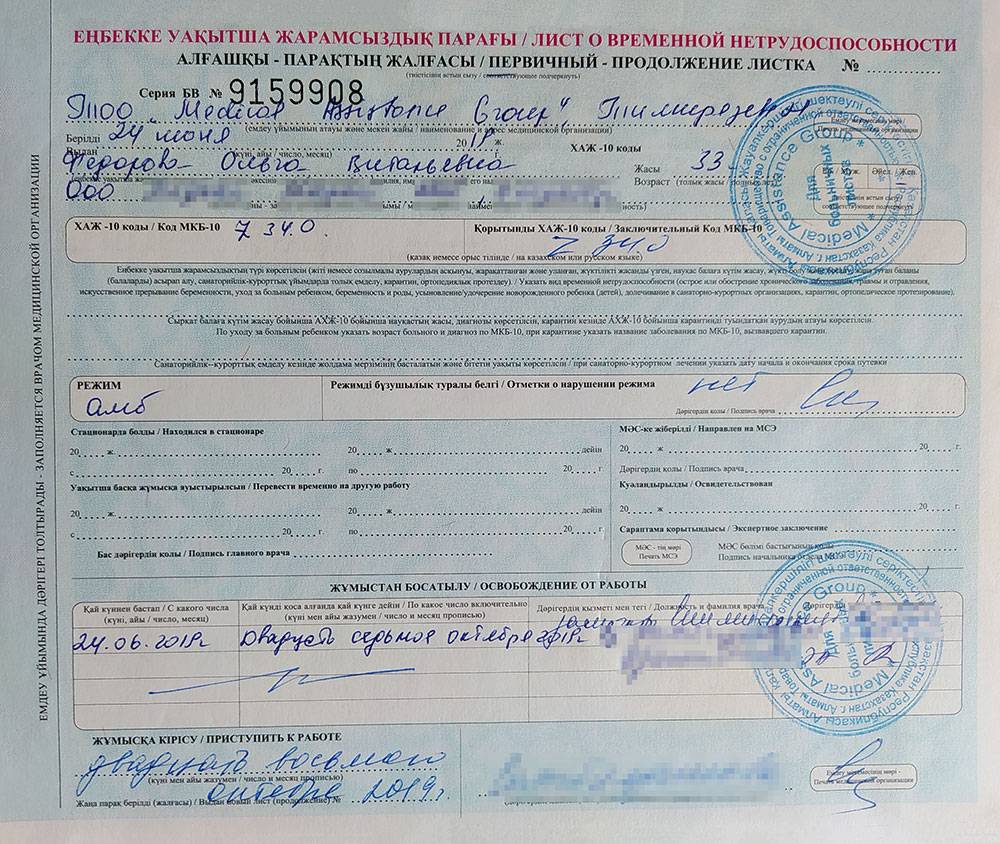 ЕҢБЕККЕ УАҚЫТША ЖАРАМСЫЗДЫҚ ПАРАҒЫ / ЛИСТ О ВРЕМЕННОЙ НЕТРУДОСПОСОБНОСТИ
АЛҒАШҚЫ - ПАРАҚТЫҢ ЖАЛҒАСЫ / ПЕРВИЧНЫЙ - ПРОДОЛЖЕНИЕ ЛИСТКА №
(тиістісінің астын сызу / соответствующее подчеркнуть)
Серия БВ № 9159908
ТОО „Medical Assistance Group“, Тимирязева
(емдеу ұйымының атауы және мекен жайы / наименование и адрес медицинской организации)
Берілді 24 июня 2019 ж.
Выдан (күні, айы / число, месяц) ХАЖ -10 коды
Федорова Ольга Витальевна Жасы 33
Возраст (толық жасы /
ООО
Ер / Муж. Әйел / Жен.
ХАЖ -10 коды / Код МКБ-10 Z 34.0 Қорытынды ХАЖ-10 коды / Заключительный Код МКБ-10
Z 34.0
(қазақ немесе орыс тілінде / на казахском или русском языке)
Еңбекке уақытша жарамсыздықтың түрі көрсетілсін (жіті немесе созылмалы аурулардың асқынуы, жарақаттанған және уланған, жүктілікті жасанды үзген, науқас балаға күтім жасау, жүкті
(балаларды) асырап алу, санаторийлік-курорттық ұйымдарда толық емделу, карантин, ортопедиялық протездеу). / Указать вид временной нетрудоспособности (острое или обострение хронического заболевания, травмы и отравления,
искусственное прерывание беременности, уход за больным ребенком, беременность и роды, усыновление/удочерение новорожденного ребенка (детей), долечивание в санаторно-курортных организациях, карантин, ортопедическое протезирование).
Сырқат балаға күтім жасау бойынша АХЖ-10 бойынша науқастың жасы, диагнозы көрсетілсін, карантин кезінде АХЖ-10 бойынша карантинді туындатқан аурудың атауы көрсетілсін.
По уходу за больным ребенком указать возраст больного и диагноз по МКБ-10, при карантине указать название заболевания по МКБ-10, вызвавшего карантин.
Санаторийлік--курорттық емделу кезінде жолдама мерзімінің басталатын және бітетін уақыты көрсетілсін / при санаторно-курортном лечении указать дату начала и окончания срока путевки
РЕЖИМ Режимді бұзушылық туралы белгі / Отметки о нарушении режима нет
амб Дәрігердің қолы / Подпись врача
Стационарда болды / Находился в стационаре МӘС-ке жіберілді / Направлен на МСЭ
20 ж. 20 ж дейін 20 ж 20 г.
с 20 г. по 20 г. Дәрігердің қолы / Подпись врача
Уақытша басқа жұмысқа ауыстырылсын / Перевести временно на другую работу Куәландырылды / Освидетельствован
20 ж. 20 ж дейін 20 ж 20 г.
с 20 г. по 20 г. Сараптама қорытындысы / Экспертное заключение
Бас дәрігердің қолы / Подпись главного врача МӘС - тің мөрі МӘС бөлімі бастығының қолы
Печать МСЭ Подпись начальника отдела МСЭ
ЖҰМЫСТАН БОСАТЫЛУ / ОСВОБОЖДЕНИЕ ОТ РАБОТЫ
Қай күннен бастап / С какого числа Қай күнді қоса алғанда қай күнге дейін / По какое число включительно Дәрігердің қызметі мен тегі / Должность и фамилия врача Дәрігердің
(күні, айы / число, месяц) (күні мен айы жазумен / число и месяц прописью)
24.06.2019г Двадцать седьмое октября 2019г.
ЖҰМЫСҚА КІРІСУ / ПРИСТУПИТЬ К РАБОТЕ
двадцать восьмого
(күні мен айы жазумен / число и месяц прописью)
октября 2019г.
Жаңа парақ берілді (жалғасы) / Выдан новый лист (продолжение) №
Емдеу мекемесінің мөрі -
Печать медицинской организации
ЕМДЕУ ҰЙЫМЫНДА ДӘРІГЕРІ ТОЛТЫРАДЫ - ЗАПОЛНЯЕТСЯ ВРАЧОМ МЕДИЦИНСКОЙ ОРГАНИЗАЦИИ
Medical Assistance Group
Для больничных листов